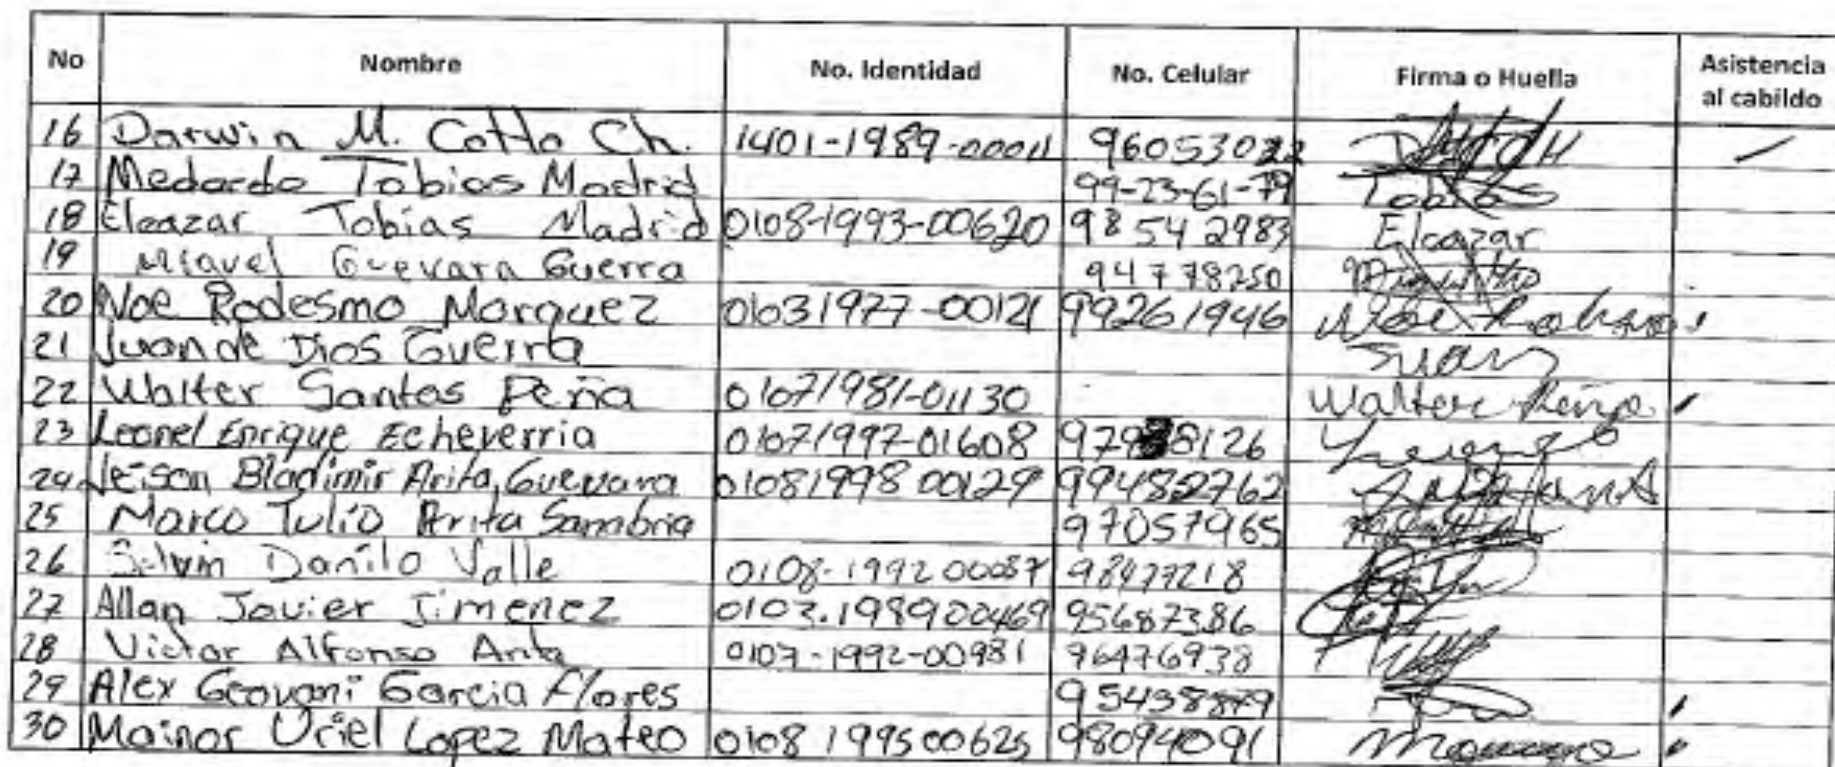 No Nombre No. Identidad No. Celular Firma o Huella Asistencia al cabildo
16 Darwin M. Cotto Ch. 1401-1989-00011 96053022
17 Medardo Tobias Madrid 99-23-61-79 Tobias
18 Eleazar Tobias Madrid 0108-1993-00620 98 54 2983 Eleazar
19 Miguel Guevara Guerra 94778250
20 Noe Rodesmo Marquez 01031977-00121 99261946 Noe
21 Juan de Dios Guerra Juan
22 Walter Santos Peña 01071981-01130 Walter Peña
23 Leonel Enrique Echeverria 01071997-01608
24 Jeison Bladimir Arita Guevara 01081998 00129 99482762
25 Marco Tulio Arita Sanabria 97057965
26 Danilo Valle 0108-1992 00087 98477218
27 Allan Javier Jimenez 0103.1989 00469 95687386
28 Victor Alfonso Arita 0107-1992-00981 96476938
29 Alex Geovani Garcia Flores
30 Mainor Uriel Lopez Mateo 0108 1995 00625 98094091